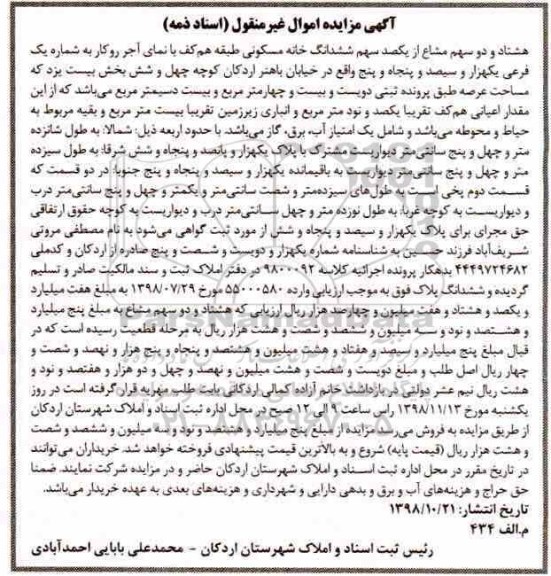 آگهی مزایده اموال غیرمنقول (اسناد ذمه)
هشتاد و دو سهم مشاع از یکصد سهم ششدانگ خانه مسکونی طبقه هم‌کف با نمای آجر روکار به شماره یک
فرعی یکهزار و سیصد و پنجاه و پنج واقع در خیابان باهنر اردکان کوچه چهل و شش بخش بیست یزد که
مساحت عرصه طبق پرونده ثبتی دویست و بیست و چهارمتر مربع و بیست دسیمتر مربع می‌باشد که از این
مقدار اعیانی هم‌کف تقریبا یکصد و نود متر مربع و انباری زیرزمین تقریبا بیست متر مربع و بقیه مربوط به
حیاط و محوطه می‌باشد و شامل یک امتیاز آب، برق، گاز می‌باشد. با حدود اربعه ذیل: شمالا: به طول شانزده
متر و چهل و پنج سانتی‌متر دیواریست مشترک با پلاک یکهزار و پانصد و پنجاه و شش شرقا: به طول سیزده
متر و چهل و پنج سانتی‌متر دیواریست به باقیمانده یکهزار و سیصد و پنجاه و پنج جنوبا: در دو قسمت که
قسمت دوم پخی است به طول‌های سیزده‌متر و شصت سانتی‌متر و یکمتر و چهل و پنج سانتی‌متر درب
و دیواریست به کوچه غربا: به طول نوزده متر و چهل سانتی‌متر درب و دیواریست به کوچه حقوق ارتفاقی
حق مجرای برای پلاک یکهزار و سیصد و پنجاه و شش از مورد ثبت گواهی می‌شود به نام مصطفی مروتی
شریف‌آباد فرزند حسین به شناسنامه شماره یکهزار و دویست و شصت و پنج صادره از اردکان و کدملی
۴۴۴۹۷۲۴۶۸۲ بدهکار پرونده اجرائیه کلاسه ۹۸۰۰۰۹۲ در دفتر املاک ثبت و سند مالکیت صادر و تسلیم
گردیده و ششدانگ پلاک فوق به موجب ارزیابی وارده ۵۵۰۰۰۵۸۰ مورخ ۱۳۹۸/۰۷/۲۹ به مبلغ هفت میلیارد
و یکصد و هشتاد و هفت میلیون و چهارصد هزار ریال ارزیابی که هشتاد و دو سهم مشاع به مبلغ پنج میلیارد
و هشتصد و نود و سه میلیون و ششصد و شصت و هشت هزار ریال به مرحله قطعیت رسیده است که در
قبال مبلغ پنج میلیارد و سیصد و هفتاد و هشت میلیون و هشتصد و پنجاه و پنج هزار و نهصد و شصت و
چهار ریال اصل طلب و مبلغ دویست و شصت و هشت میلیون و نهصد و چهل و دو هزار و هفتصد و نود و
هشت ریال نیم عشر دولتی در بازداشت خانم آزاده کمالی اردکانی بابت طلب مهرایه قرار گرفته است در روز
یکشنبه مورخ ۱۳۹۸/۱۱/۱۳ راس ساعت ۹ الی ۱۲ صبح در محل اداره ثبت اسناد و املاک شهرستان اردکان
از طریق مزایده به فروش می‌رسد مزایده از مبلغ پنج میلیارد و هشتصد و نود و سه میلیون و ششصد و شصت
و هشت هزار ریال (قیمت پایه) شروع و به بالاترین قیمت پیشنهادی فروخته خواهد شد. خریداران می‌توانند
در تاریخ مقرر در محل اداره ثبت اسناد و املاک شهرستان اردکان حاضر و در مزایده شرکت نمایند. ضمنا
حق حراج و هزینه‌های آب و برق و بدهی دارایی و شهرداری و هزینه‌های بعدی به عهده خریدار می‌باشد.
تاریخ انتشار: ۱۳۹۸/۱۰/۲۱
م.الف ۴۳۴
رئیس ثبت اسناد و املاک شهرستان اردکان - محمدعلی بابایی احمدآبادی